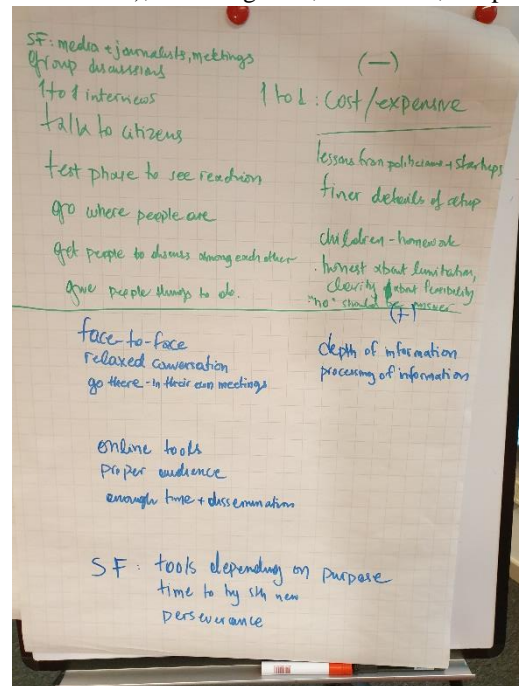 SF: media + journalists, meetings
group discussions
1 to 1 interviews
talk to citizens
test phase to see reaction
go where people are
get people to discuss among each other
give people things to do.
(-)
1 to 1: cost/expensive
lessons from politicians + startups
finer details of setup
children - homework
. honest about limitation,
clarity about flexibility
"no" should be answer
face-to-face
relaxed conversation
go there - in their own meetings
(+)
depth of information
processing of information
online tools
proper audience
enough time + dissemination
SF: tools depending on purpose
time to try sth new
perseverance